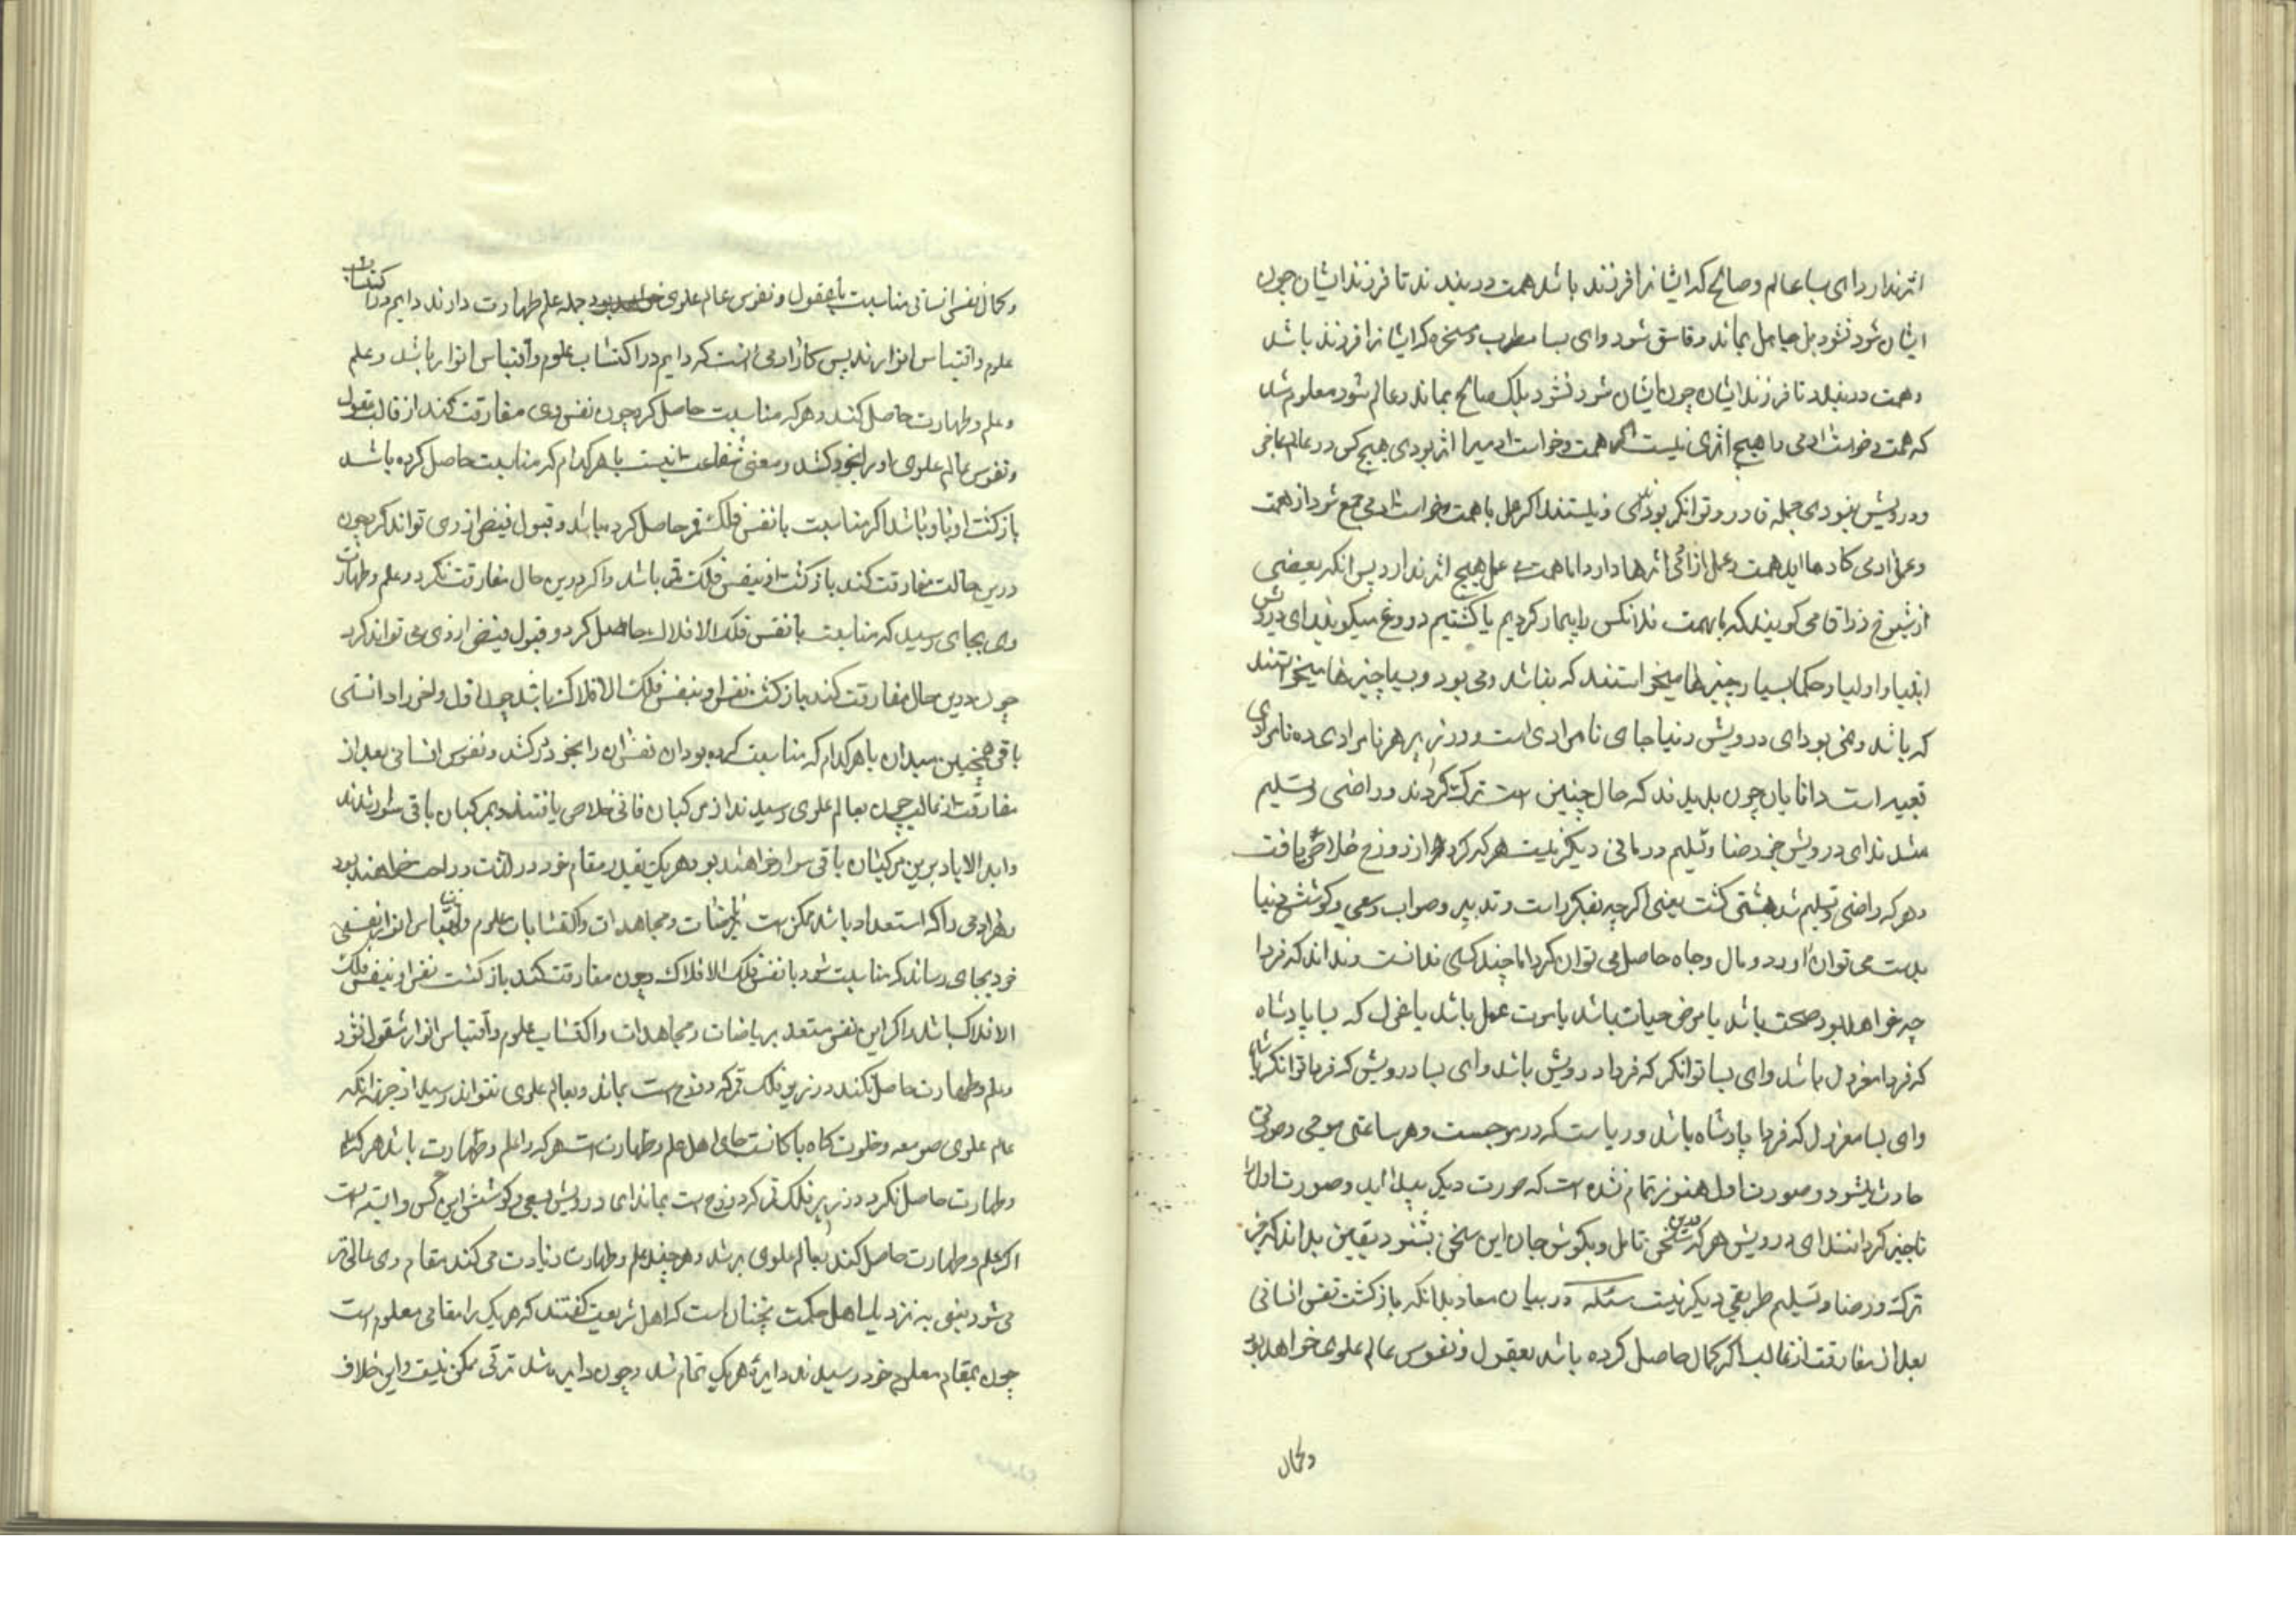 اثر ندارد ای بسا عالم و صالح که ایشانرا فرزند باشد همت در بندند تا فرزند ایشان چون
ایشان شود نشود بل جاهل بماند و فاسق شود و ای بسا مطرب و مسخره که ایشانرا فرزند باشد
و همت در بندد تا فرزند ایشان چون ایشان شود نشود بلک صالح بماند و عالم شود معلوم شد
که همت و خواست ادمی را هیچ اثری نیست اگر همت و خواست ادمیرا اثر بودی هیچ کس در عالم عاجز
و درویش نبودی جمله قادر و توانکر بودندی و نیستند اکر عمل با همت و خواست ادمی جمع شود از همت
و عمل ادمی کارها اید همت و عمل ادمی اثرها دارد اما همت بی عمل هیچ اثر ندارد پس انکه بعضی
از شیوخ زراقا می کویند که بهمت فلانکس را بیمار کردیم یا کشتیم دروغ میکویند ای درویش
انبیا و اولیا و حکما بسیار چیزها میخواستند که نباشد و می بود و بسیار چیزها میخواستند
که باشد و نمی بود ای درویش دنیا جای نامرادی است و در زیر هر نامرادی ده نامرادی
تعبیه است دانایان چون بدیدند که حال چنین است ترک کردند و راضی و تسلیم
شدند ای درویش جز رضا و تسلیم درمانی دیکر نیست هر که کرد از دوزخ خلاصی یافت
و هر که راضی و تسلیم شد بهشتی کشت یعنی اکرچه بفکر راست و تدبیر و صواب و سعی و کوشش دنیا
بدست می توان اورد و مال و جاه حاصل می توان کرد اما چند کسی ندانست و نداند که فردا
چه خواهد بود صحت باشد یا مرض حیات باشد یا موت عمل باشد یا عزل که بسا پادشاه
که فردا معزول باشد و ای بسا توانکر که فردا درویش باشد و ای بسا درویش که فردا توانکر باشد
و ای بسا معزول که فردا پادشاه باشد و دریاست که در موجست و هر ساعتی موجی و صورتی
حادث میشود و صورت اول هنوز تمام نشده است که صورت دیکر پیدا اید و صورت اول را
ناچیز کردانند ای درویش هر که درین سخن تامل و بکوش جان این سخن بشنود بیقین بداند که جز
ترک و رضا و تسلیم طریقی دیکر نیست مسئله در بیان معاد بدانکه بازکشت نفس انسانی
بعد از مفارقت از قالب اکر کمال حاصل کرده باشد بعقول و نفوس عالم علوی خواهد بود
و کمال
و کمال نفس انسانی مناسبت با عقول و نفوس عالم علوی جمله علم و طهارت دارند دایم در اکتساب
علوم و اقتباس انوارند پس کار ادمی انست که دایم در اکتساب علوم و اقتباس انوار باشد و علم
و علم و طهارت حاصل کند و هر که مناسبت حاصل کرد چون نفس وی مفارقت کند از قالب عقول
و نفوس عالم علوی او را بخود کشد و معنی شفاعت اینست با هر کدام که مناسبت حاصل کرده باشد
بازکشت او باو باشد اکر مناسبت با نفس فلک قمر حاصل کرده باشد و قبول فیض از وی تواند کرد چون
درین حالت مفارقت کند بازکشت او بنفس فلک قمر باشد و اکر درین حال مفارقت نکرد و علم و طهارت
وی بجای رسید که مناسبت با نفس فلک الافلاک حاصل کرد و قبول فیض از وی می تواند کرد
چون درین حال مفارقت کند بازکشت نفس او بنفس فلک الافلاک باشد چون اول و اخر را دانستی
باقی همچنین میدان با هر کدام که مناسبت کرده بود ان نفس ان را بخود کشد و نفوس انسانی بعد از
مفارقت از قالب چون بعالم علوی رسیدند از مرکبان فانی خلاص یافتند و بمرکبان باقی سوار شدند
و ابد الاباد برین مرکبان باقی سوار خواهند بود و هر یک بقدر مقام خود در لذت و راحت خواهند بود
هر ادمی را که استعداد باشد ممکن است بریاضات و مجاهدات و اکتسابات علوم و اقتباس انوار نفس
خود بجای رساند که مناسبت شود با نفس فلک الافلاک و چون مفارقت کند بازکشت نفس او بنفس فلک
الافلاک باشد و اکر این نفس مستعد بریاضات و مجاهدات و اکتساب علوم و اقتباس انوار مشغول نشود
و علم و طهارت حاصل نکند در زیر فلک قمر که دوزخ است بماند و بعالم علوی نتواند رسید از جهت انکه
عالم علوی صومعه و خلوتکاه پاکانست جای اهل علم و طهارت است هر که را علم و طهارت باشد هر که علم
و طهارت حاصل نکرد در زیر فلک قمر که دوزخ است بماند ای درویش بسعی و کوشش این کس وابسته است
اکر علم و طهارت حاصل کند بعالم علوی برشد و هر چند علم و طهارت زیادت می کند مقام وی عالی تر
می شود یعنی به نزدیک اهل حکمت نچنان است که اهل شریعت کفتند که هر یک را مقامی معلوم است
چون بمقام معلوم خود رسیدند دایرۀ هر یک تمام شد و چون دایره شد ترقی ممکن نیست و این خلاف